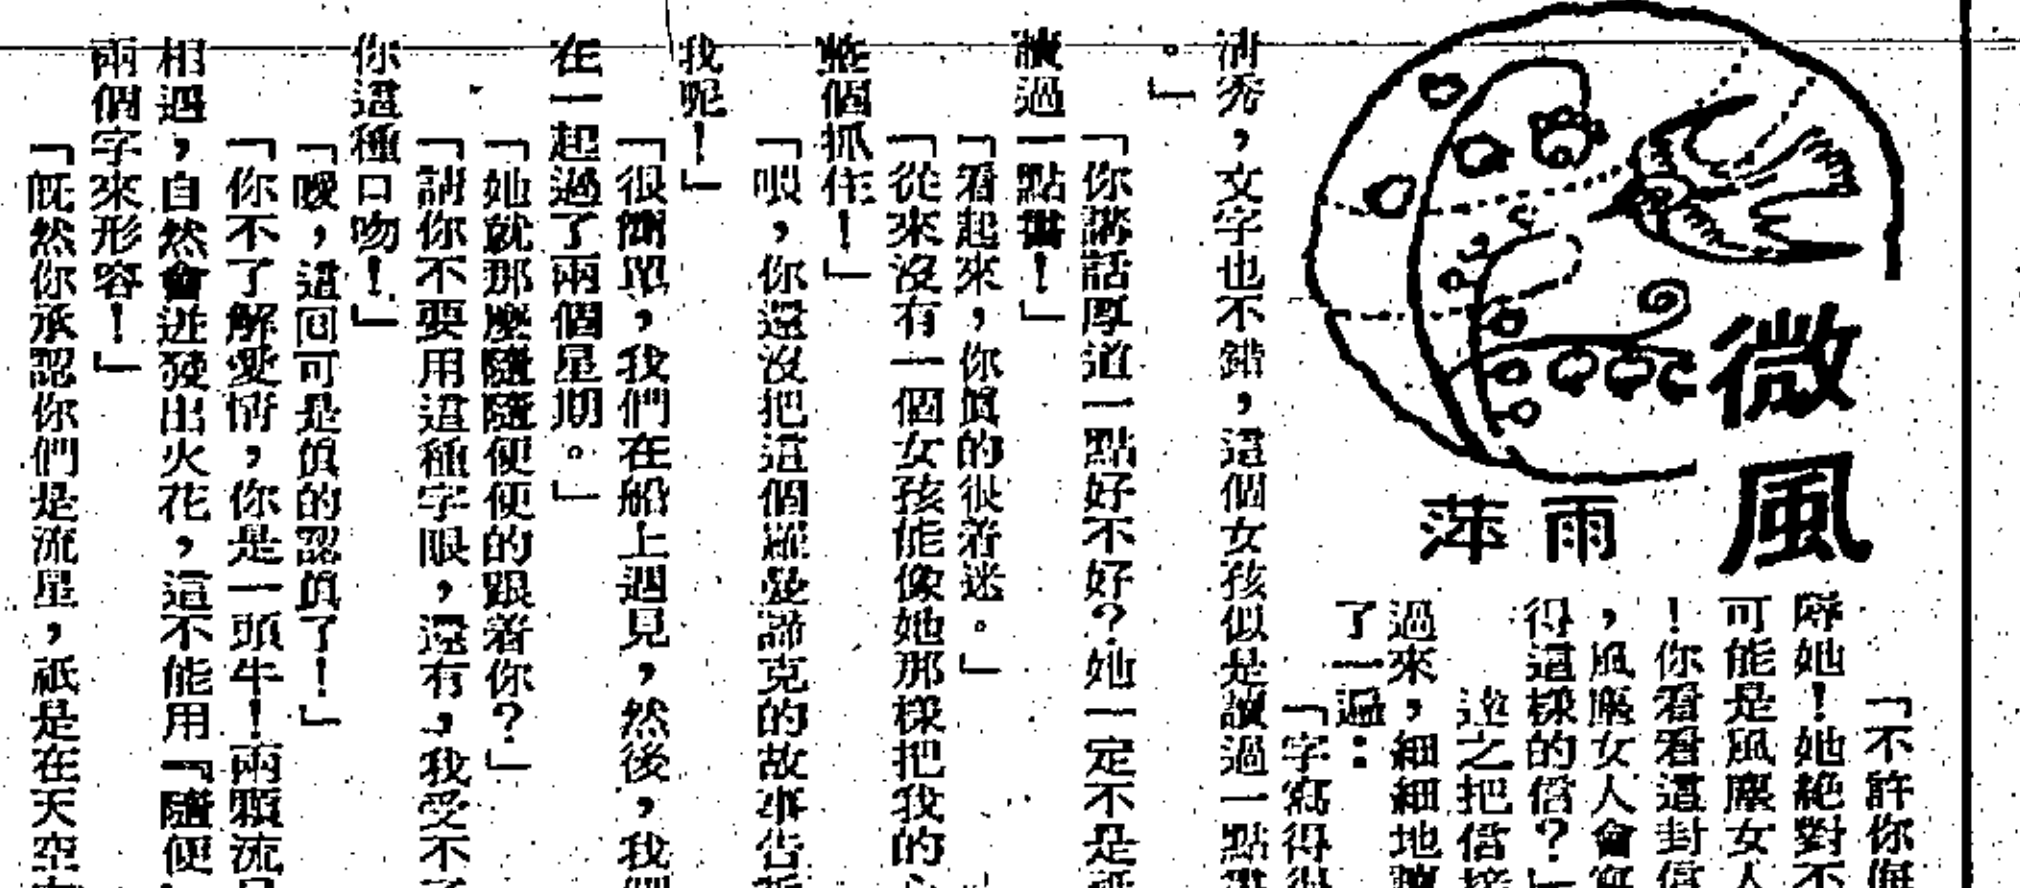 微風
雨萍
「不許你侮
辱她！她絕對不
可能是風塵女人
！你看看這封信
，風塵女人會寫
得這樣的信？」
達之把信接
過來，細細地讀
了一遍：
「字寫得很
清秀，文字也不錯，這個女孩似是讀過一點書
。」
「你講話厚道一點好不好？她一定不是祇
讀過一點書！」
「看起來，你真的很着迷。」
「從來沒有一個女孩能像她那樣把我的心
整個抓住！」
「喂，你還沒把這個羅曼諦克的故事告訴
我呢！」
「很簡單，我們在船上遇見，然後，我們
在一起過了兩個星期。」
「她就那麼隨隨便便的跟着你？」
「請你不要用這種字眼，還有，我受不了
你這種口吻！」
「噯，這回可是真的認真了！」
「你不了解愛情，你是一頭牛！兩顆流星
相遇，自然會迸發出火花，這不能用『隨便』
兩個字來形容！」
「既然你承認你們是流星，祇是在天空